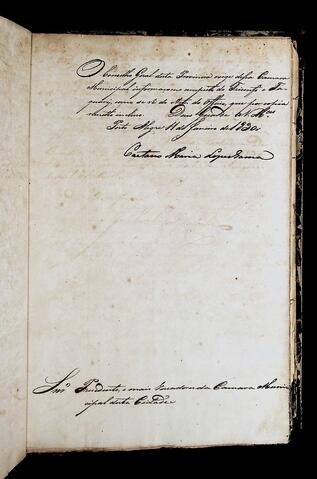 O Conselho Geral desta Provincia exige dessa Camara
Municipal informaçoens arespeito de
como se vê do Officio, que por copia
remetto incluso. Deus Guarde a V. Mces
Porto Alegre 11 de Janeiro de 1830.
Caetano Maria Lopes Gama
Snrs Prezidente, e mais Vereadores da Camara Muni-
cipal desta Cidade